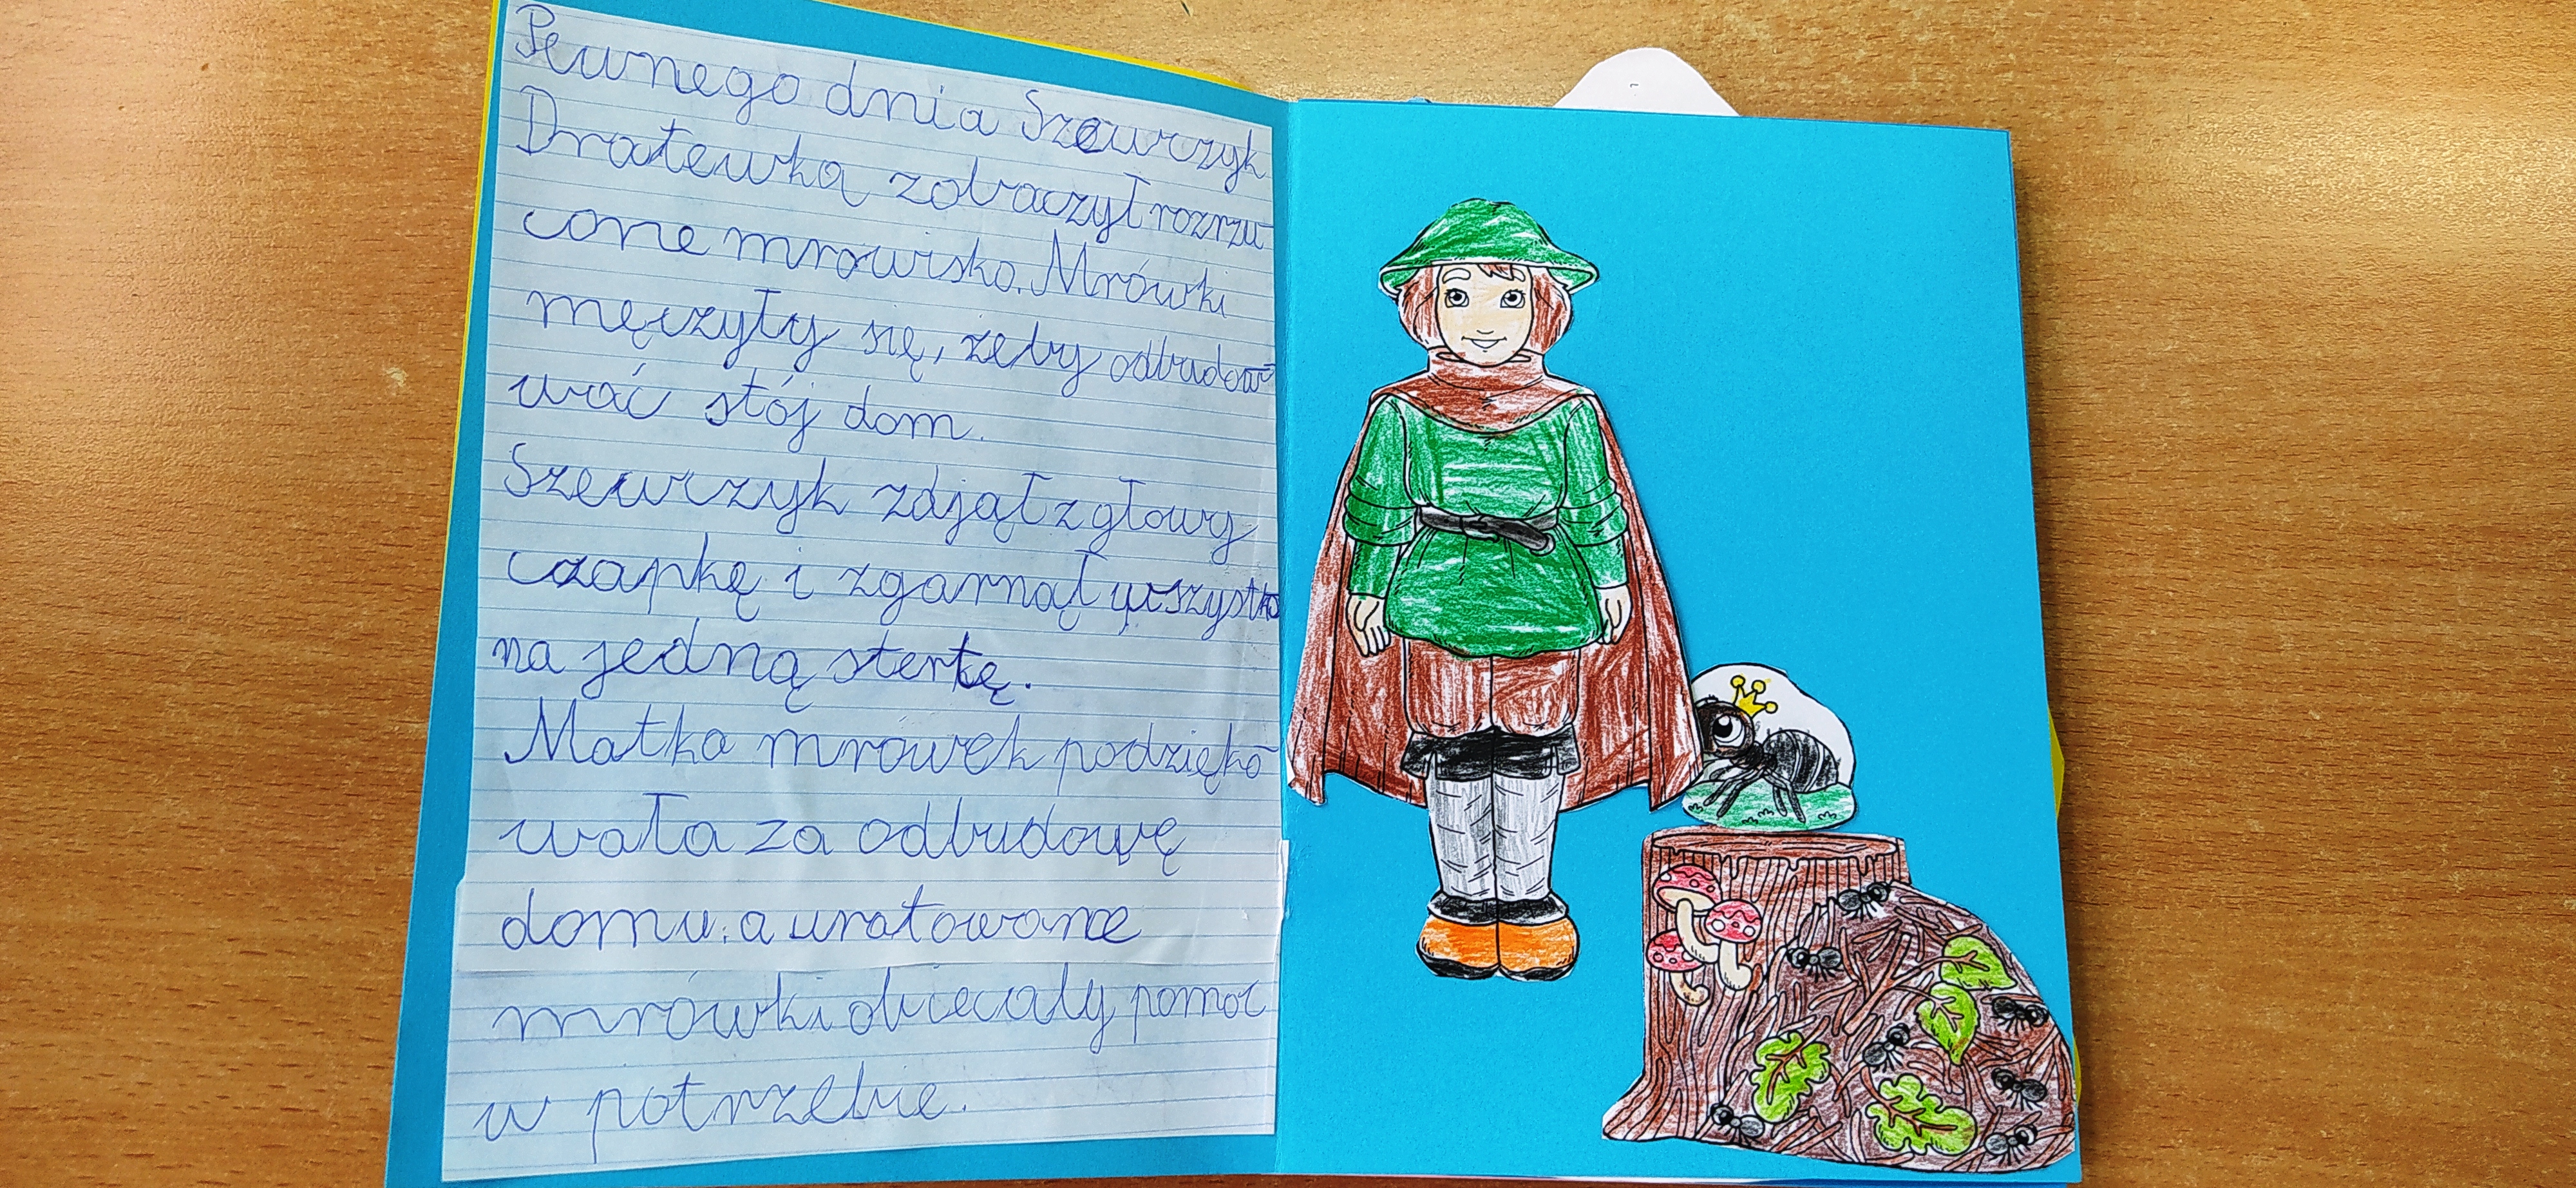 Pewnego dnia Szewczyk
Dratewka zobaczył rozrzu
cone mrowisko. Mrówki
męczyły się, żeby odbudow
wać stój dom.
Szewczyk zdjął z głowy
czapkę i zgarnął wszystko
na jedną stertę.
Matka mrówek podzięko
wała za odbudowę
domu. a uratowane
mrówki obiecały pomoc
w potrzebie.